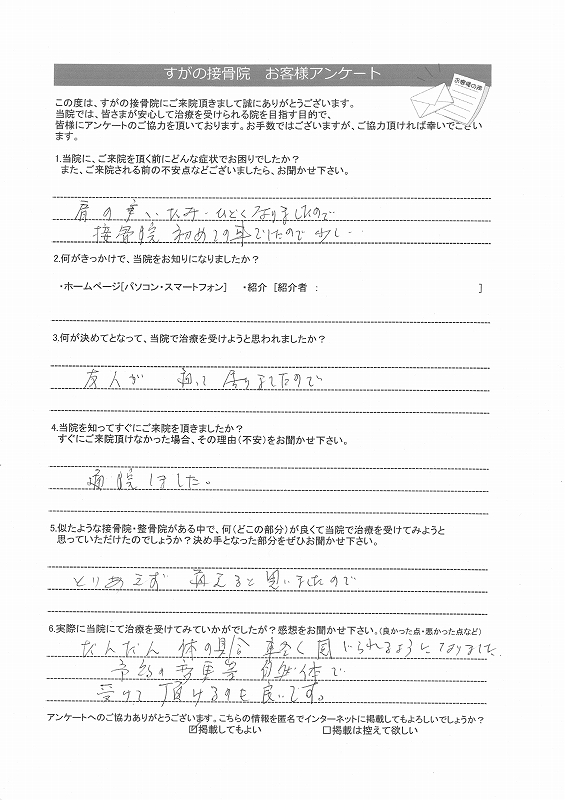 すがの接骨院 お客様アンケート
お客様の声
この度は、すがの接骨院にご来院頂きまして誠にありがとうございます。
当院では、皆さまが安心して治療を受けられる院を目指す目的で、
皆様にアンケートのご協力を頂いております。お手数ではございますが、ご協力頂ければ幸いでござい
ます。
1.当院に、ご来院を頂く前にどんな症状でお困りでしたか?
また、ご来院される前の不安点などございましたら、お聞かせ下さい。
肩の重い たみ ひどくなりましたので
接骨院 初めての事でしたので 少し…
2.何がきっかけで、当院をお知りになりましたか?
・ホームページ[パソコン・スマートフォン] ・紹介 [紹介者 : ]
3.何が決めてとなって、当院で治療を受けようと思われましたか?
友人が 通って 居りましたので
4.当院を知ってすぐにご来院を頂きましたか?
すぐにご来院頂けなかった場合、その理由(不安)をお聞かせ下さい。
通院しました。
5.似たような接骨院・整骨院がある中で、何(どこの部分)が良くて当院で治療を受けてみようと
思っていただけたのでしょうか?決め手となった部分をぜひお聞かせ下さい。
とりあえず 通えると 思いましたので
6.実際に当院にて治療を受けてみていかがでしたが?感想をお聞かせ下さい。(良かった点・悪かった点など)
だんだん 体の具合 軽く 感じられるようになりました。
予約の変更等 自然体で
受けて 頂けるのも 良いです。
アンケートへのご協力ありがとうございます。こちらの情報を匿名でインターネットに掲載してもよろしいでしょうか?
☑掲載してもよい □掲載は控えて欲しい